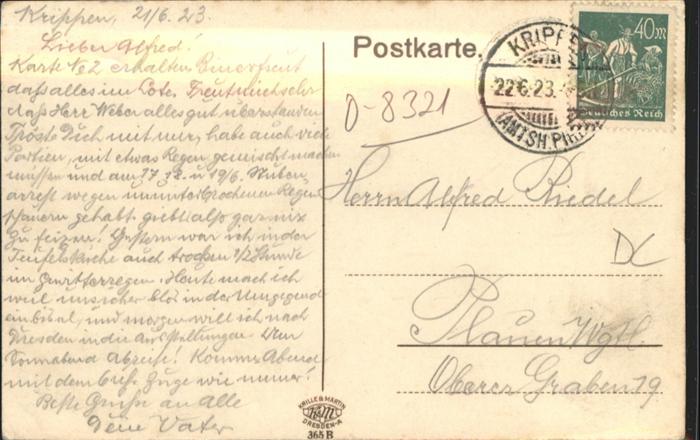 Krippen, 21/6.23.
Lieber Alfred!
Karte No 2 erhalten. Bin erfreut
daß alles im Lote. Freut mich sehr
daß Herr Weber alles gut überstanden.
Tröste Dich mit mir, habe auch viele
Partien, mit etwas Regen gemischt machen
müssen und am 17. 18. u 19/6. Stuben
arrest wegen ununterbrochener Regen
schauern gehabt, giebt also gar nix
zu feixen! Gestern war ich in der
Teufelskirche auch 1/2 Stunde
im Gewitterregen. Heute mach ich
weil unsicher blos in der Umgegend
ein bissel, und morgen will ich nach
Dresden in die Ausstellungen. Den
Sonnabend Abreise! Komme Abend
mit dem Zuge wie immer!
Beste Grüße an Alle
Dein Vater
Postkarte.
D-8321
KRIPPEN
22.6.23.
(AMTSH. PIRNA)
40 M
Deutsches Reich
Herrn Alfred Riedel
DC
Plauen Vgtl.
Oberer Graben 19
KRILLE & MARTIN
K&M
DRESDEN-A
365 B